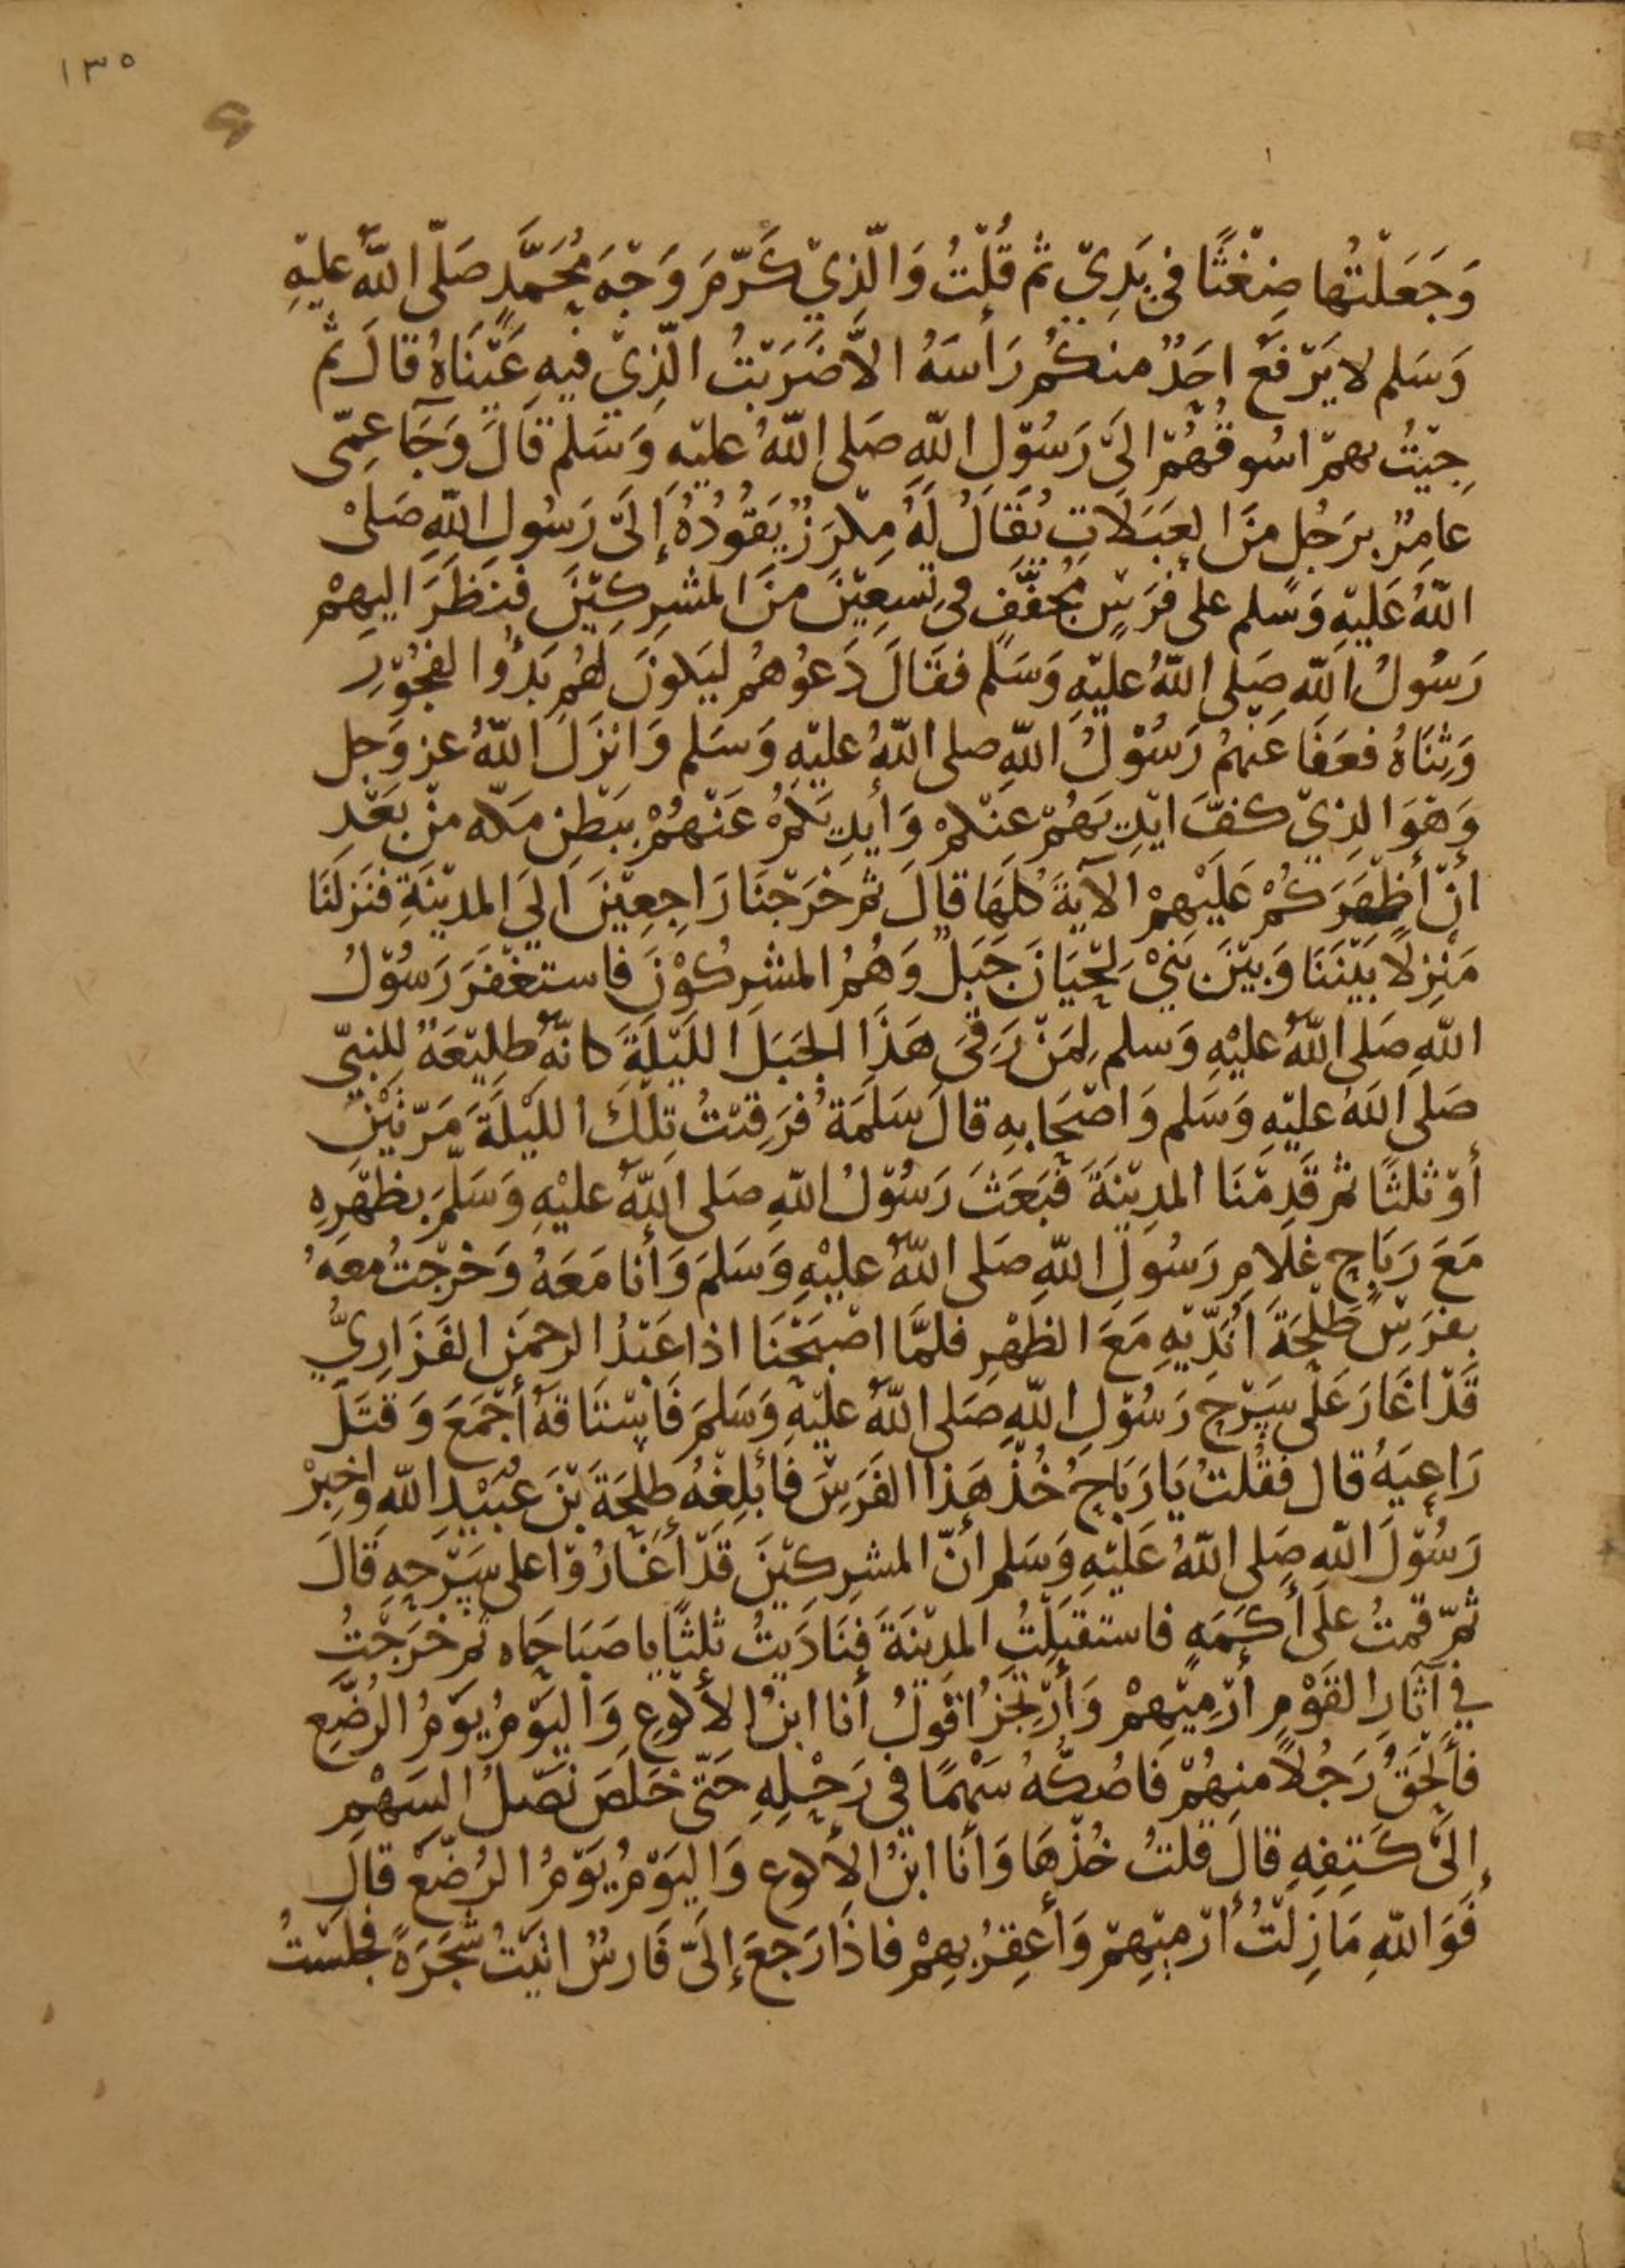 ١٣٥
وَجَعَلْتُها ضِغْثًا في يَدِيّ ثم قُلْتُ وَالَّذِيْ كَرَّمَ وَجْهَ مُحَمَّدٍ صَلّى اللهُ عليْهِ
وَسَلم لا يَرْفَعُ احَدٌ منكُم رَأسَهُ الاَّ ضَرَبْتُ الَّذِيْ فيهِ عَيْنَاهُ قالَ ثم
جِيْتُ بهمْ اسُوقُهُمْ الىَ رَسُوْلِ اللهِ صَلى اللهُ عليْهِ وَسَلم قَالَ وَجَآ عَمِّى
عامِرٌ بِرَجُلٍ منَ العَبَلَاتِ يُقَالُ لَهُ مِكْرَزٌ يَقُودُهُ إِلَىَ رَسُولِ اللهِ صَلىْ
اللهُ عَلَيْهِ وَسَلم على فَرَسٍ مُجَفَّفٍ فى تِسعِيْنَ منَ المشرِكِيْنَ فنَظَرَ اليهِمْ
رَسُولُ اللهِ صَلى اللهُ عليْهِ وَسَلم فقَالَ دَعُوهُم ليَكونَ لهُم بَدْؤُ الفجُوْرِ
وَثِنَاهُ فعَفَا عَنهُمُ رَسُوْلُ اللهِ صلى اللهُ عليْهِ وَسَلم وَانْزَلَ اللهُ عز وَجل
وَهْوَ الذِيْ كفَّ ايْدِيَهُمْ عنْكمْ وَأيْدِيَكُمْ عَنْهُمْ بِبَطْنِ مَكه منْ بَعْدِ
أنْ أظْفَرَكُمْ عَلَيْهِمْ الآيَةَ كلهَا قالَ ثم خَرَجْنَا رَاجِعِيْنَ الَي المدِيْنَةِ فنَزَلنَا
مَنْزِلًا بَيْنَنَا وَبيْنَ بَنيْ لِحْيَانَ جَبَلٌ وَهُمُ المشرِكُوْنَ فاستَغْفَرَ رَسُوْلُ
اللهِ صَلى اللهُ عليْهِ وَسلم لِمَنْ رَقىَ هَذَا الجبَلَ الليْلَةَ كانهُ طلِيْعَةٌ للِنبيّ
صَلى اللهُ عليْهِ وَسَلم وَاصْحَابهِ قالَ سَلَمَةُ فرَقِيْتُ تِلْكَ الليْلَةَ مَرّتَيْنِ
أوْ ثلثًا ثم قَدِمْنَا المدِيْنَةَ فبَعَثَ رَسُوْلُ اللهِ صَلى اللهُ عليْهِ وَسَلَّمَ بِظهْرِهِ
مَعَ رَبَاحٍ غلَامِ رَسُولِ اللهِ صَلى اللهُ عليْهِ وَسَلمَ وَأنا مَعَهُ وَخرَجْتُ معَهُ
بفرَسِ طَلْحَةَ انَدِّيْهِ مَعَ الظهْرِ فلمَّا اصْبَحْنَا اذا عَبْدُ الرحمَنِ الفَزَارِيُّ
قَدْ اغَارَ عَلَى سَرْحِ رَسُوْلِ اللهِ صَلى اللهُ عليْهِ وَسَلمَ فَاسْتَاقهُ أجْمَعَ وَقتَلَ
رَاعِيَهُ قال فقُلتُ يَا رَبَاحُ خُذْ هَذا الفَرَسَ فأبْلِغْهُ طلحَةَ بْنَ عُبَيْدِ اللهِ وَاخبِرْ
رَسُوْلَ اللهِ صَلى اللهُ عَلَيْهِ وَسَلم أنّ المشرِكيْنَ قَدْ أغَارُوْا على سَرْحِهِ قالَ
ثمّ قمتُ علَى أكَمَةٍ فاستَقْبَلْتُ المدِيْنَةَ فنَادَيْتُ ثلثًا يا صَبَاحَاه ثم خرَجْتُ
في آثَارِ القَوْمِ أرْمِيْهِمْ وَأرْتجزُ اقوْلُ أنا ابنُ الأكْوَعِ وَاليَوْمُ يَوْمُ الرُضّعِ
فألحَقُ رَجُلًا منهُمْ فَاصُكّهُ سَهْمًا في رَحْلِهِ حَتّى خَلصَ نَصْلُ السَهْمِ
إلىَ كَتِفِهِ قالَ قلتُ خُذْهَا وَأنا ابْنُ الأكوعِ وَاليَوْمُ يَوْمُ الرُضّعِ قالَ
فَوَاللهِ مَا زِلْتُ أرْميْهِمْ وَأعقِرُ بهِمْ فاذَا رَجعَ إلَىَّ فَارسٌ اتيْتُ شَجَرَةً فجلَسْتُ